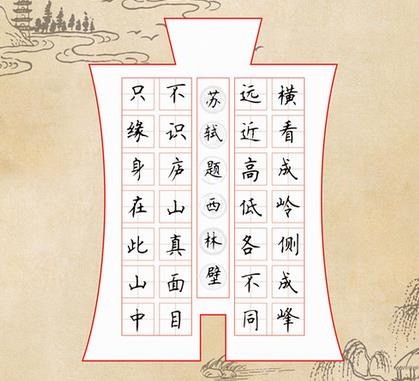 横看成岭侧成峰
远近高低各不同
苏轼题西林壁
不识庐山真面目
只缘身在此山中